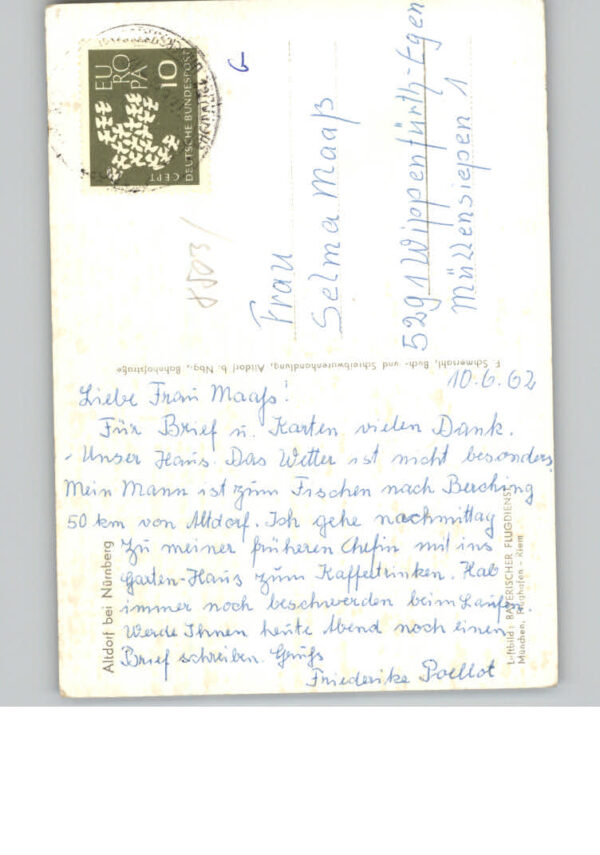 10.6.62
Liebe Frau Maaß!
Für Brief u. Karten vielen Dank.
- Unser Haus. Das Wetter ist nicht besonders
Mein Mann ist zum Fischen nach Berching
50 km von Altdorf. Ich gehe nachmittag
zu meiner früheren Chefin mit ins
Garten-Haus zum Kaffeetrinken. Hab
immer noch beschwerden beim Laufen.
Werde Ihnen heute Abend noch einen
Brief schreiben. Gruß
Friederike Poellot
Frau
Selma Maaß
5291 Wippenfürth-Egen
Müllensiepen 1
EUROPA
10
DEUTSCHE BUNDESPOST
CEPT
8503/
F. Schmersahl, Buch- und Schreibwarenhandlung, Altdorf b. Nbg., Bahnhofstraße
Altdorf bei Nürnberg
Luftbild: BAYERISCHER FLUGDIENST
München, Flughafen - Riem